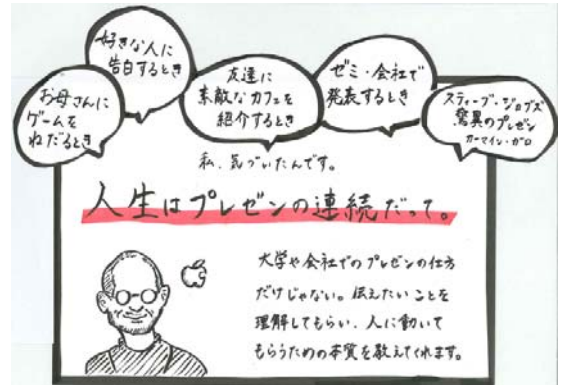 お母さんに
ゲームを
ねだるとき
好きな人に
告白するとき
友達に
素敵なカフェを
紹介するとき
ゼミ・会社で
発表するとき
スティーブ・ジョブズ
驚異のプレゼン
カーマイン・ガロ
私、気づいたんです。
人生はプレゼンの連続だって。
大学や会社でのプレゼンの仕方
だけじゃない。伝えたいことを
理解してもらい、人に動いて
もらうための本質を教えてくれます。